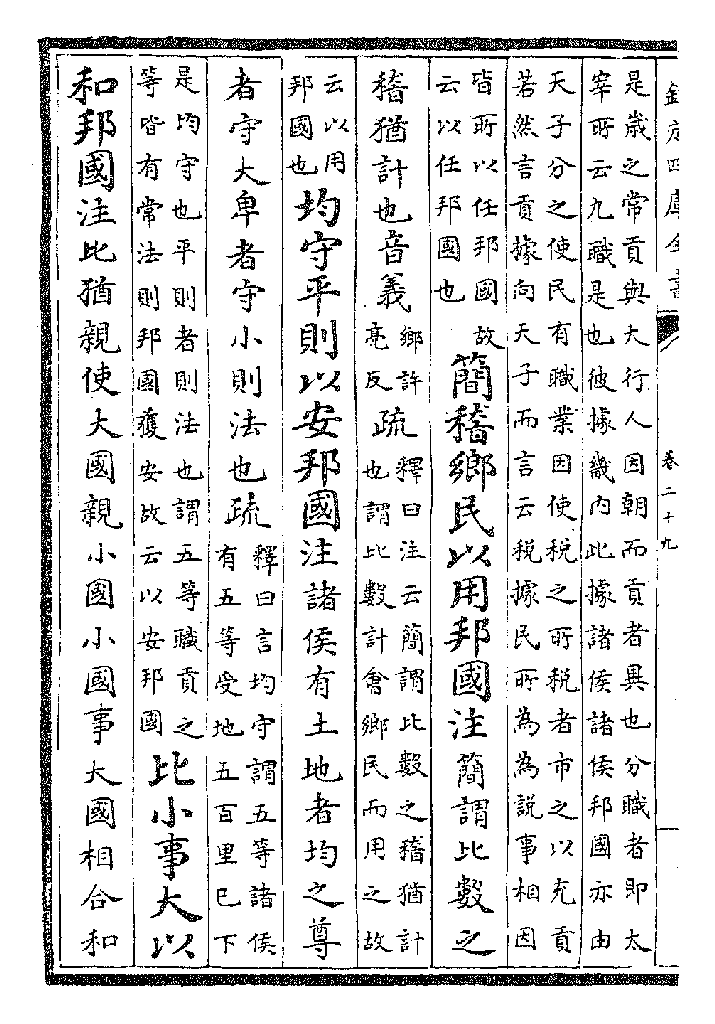 欽定四庫全書
卷二十九
是歲之常貢與大行人因朝而貢者異也分職者即太
宰所云九職是也彼據畿内此據諸侯諸侯邦國亦由
天子分之使民有職業因使税之所税者市之以充貢
若然言貢據向天子而言云税據民所為為説事相因
皆所以任邦國故
云以任邦國也
簡稽鄉民以用邦國注簡謂比數之
稽猶計也音義
鄉許
亮反
疏
釋曰注云簡謂比數之稽猶計
也謂比數計會鄉民而用之故
云以用
邦國也
均守平則以安邦國注諸侯有土地者均之尊
者守大卑者守小則法也疏
釋曰言均守謂五等諸侯
有五等受地五百里已下
是均守也平則者則法也謂五等職貢之
等皆有常法則邦國獲安故云以安邦國
比小事大以
和邦國注比猶親使大國親小國小國事大國相合和